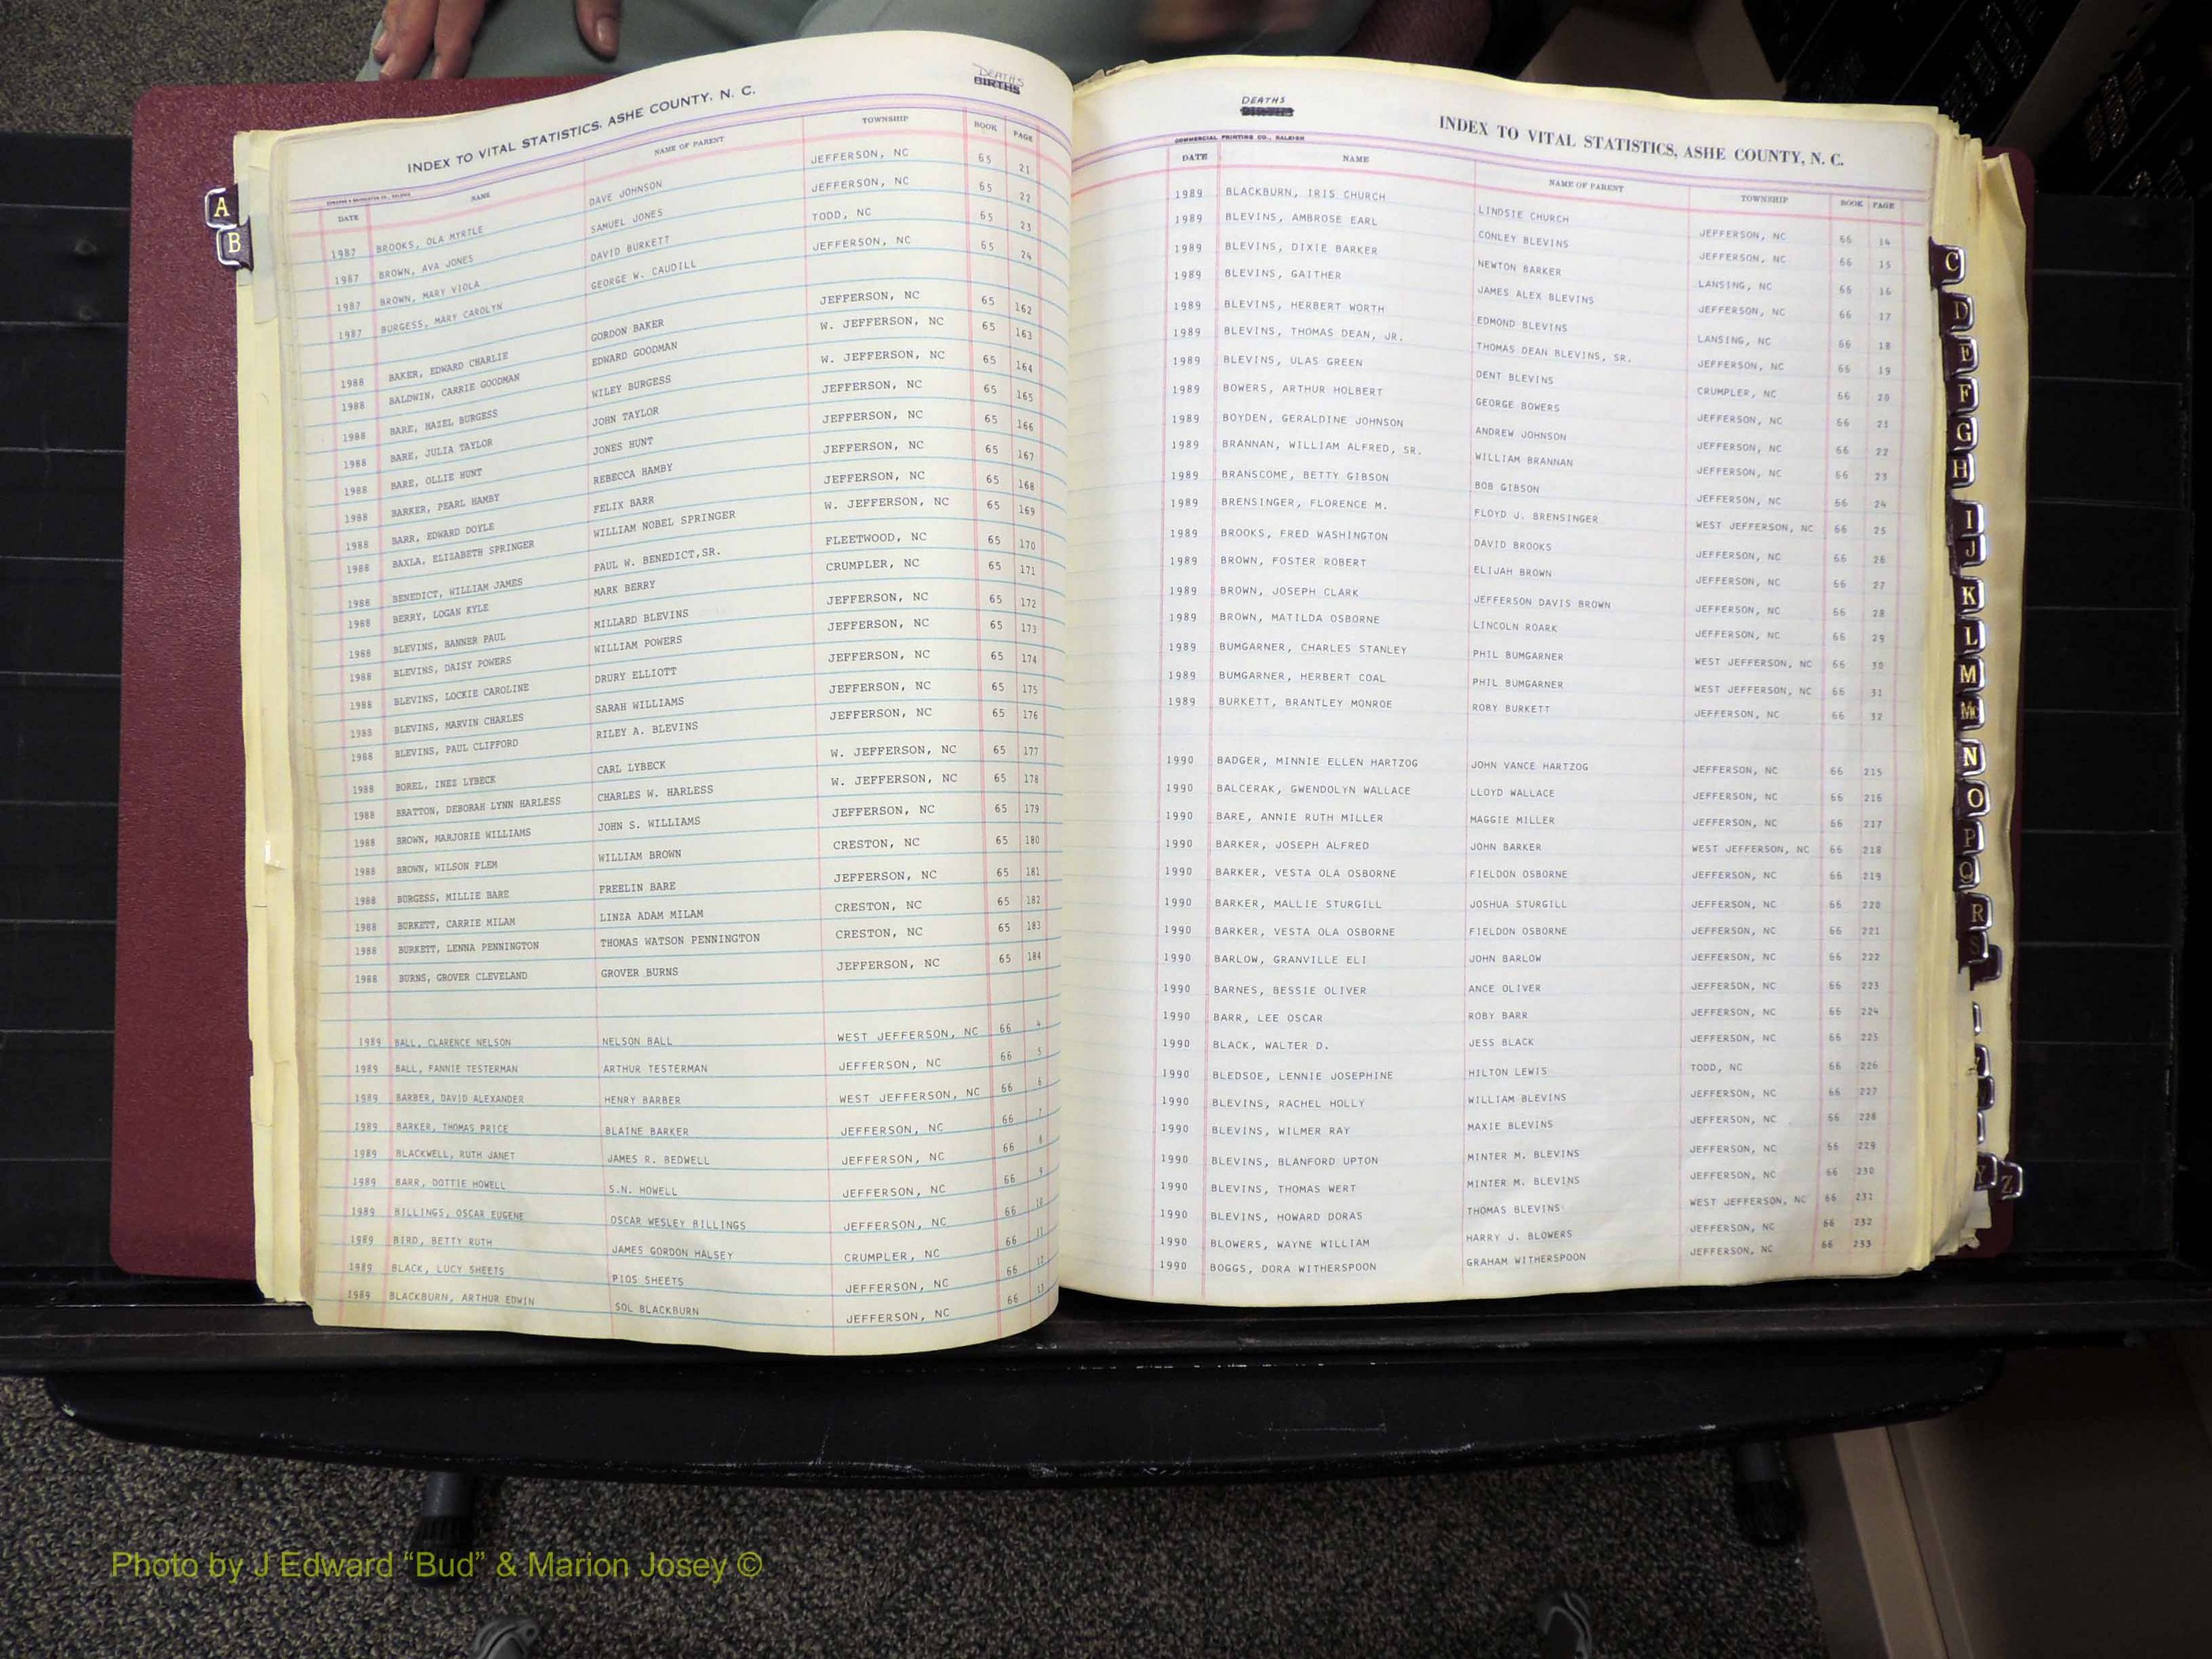 DEATHS
BIRTHS
INDEX TO VITAL STATISTICS, ASHE COUNTY, N. C.
DATE NAME NAME OF PARENT TOWNSHIP BOOK PAGE
1987 BROOKS, OLA MYRTLE DAVE JOHNSON JEFFERSON, NC 65 21
1987 BROWN, AVA JONES SAMUEL JONES JEFFERSON, NC 65 22
1987 BROWN, MARY VIOLA DAVID BURKETT TODD, NC 65 23
1987 BURGESS, MARY CAROLYN GEORGE W. CAUDILL JEFFERSON, NC 65 24
1988 BAKER, EDWARD CHARLIE GORDON BAKER JEFFERSON, NC 65 162
1988 BALDWIN, CARRIE GOODMAN EDWARD GOODMAN W. JEFFERSON, NC 65 163
1988 BARE, HAZEL BURGESS WILEY BURGESS W. JEFFERSON, NC 65 164
1988 BARE, JULIA TAYLOR JOHN TAYLOR JEFFERSON, NC 65 165
1988 BARE, OLLIE HUNT JONES HUNT JEFFERSON, NC 65 166
1988 BARKER, PEARL HAMBY REBECCA HAMBY JEFFERSON, NC 65 167
1988 BARR, EDWARD DOYLE FELIX BARR JEFFERSON, NC 65 168
1988 BAXLA, ELIZABETH SPRINGER WILLIAM NOBEL SPRINGER W. JEFFERSON, NC 65 169
1988 BENEDICT, WILLIAM JAMES PAUL W. BENEDICT,SR. FLEETWOOD, NC 65 170
1988 BERRY, LOGAN KYLE MARK BERRY CRUMPLER, NC 65 171
1988 BLEVINS, BANNER PAUL MILLARD BLEVINS JEFFERSON, NC 65 172
1988 BLEVINS, DAISY POWERS WILLIAM POWERS JEFFERSON, NC 65 173
1988 BLEVINS, LOCKIE CAROLINE DRURY ELLIOTT JEFFERSON, NC 65 174
1988 BLEVINS, MARVIN CHARLES SARAH WILLIAMS JEFFERSON, NC 65 175
1988 BLEVINS, PAUL CLIFFORD RILEY A. BLEVINS JEFFERSON, NC 65 176
1988 BOREL, INEZ LYBECK CARL LYBECK W. JEFFERSON, NC 65 177
1988 BRATTON, DEBORAH LYNN HARLESS CHARLES W. HARLESS W. JEFFERSON, NC 65 178
1988 BROWN, MARJORIE WILLIAMS JOHN S. WILLIAMS JEFFERSON, NC 65 179
1988 BROWN, WILSON FLEM WILLIAM BROWN CRESTON, NC 65 180
1988 BURGESS, MILLIE BARE FREELIN BARE JEFFERSON, NC 65 181
1988 BURKETT, CARRIE MILAM LINZA ADAM MILAM CRESTON, NC 65 182
1988 BURKETT, LENNA PENNINGTON THOMAS WATSON PENNINGTON CRESTON, NC 65 183
1988 BURNS, GROVER CLEVELAND GROVER BURNS JEFFERSON, NC 65 184
1989 BALL, CLARENCE NELSON NELSON BALL WEST JEFFERSON, NC 66 4
1989 BALL, FANNIE TESTERMAN ARTHUR TESTERMAN JEFFERSON, NC 66 5
1989 BARBER, DAVID ALEXANDER HENRY BARBER WEST JEFFERSON, NC 66 6
1989 BARKER, THOMAS PRICE BLAINE BARKER JEFFERSON, NC 66 7
1989 BLACKWELL, RUTH JANET JAMES R. BEDWELL JEFFERSON, NC 66 8
1989 BARR, DOTTIE HOWELL S.N. HOWELL JEFFERSON, NC 66 9
1989 BILLINGS, OSCAR EUGENE OSCAR WESLEY BILLINGS JEFFERSON, NC 66 10
1989 BIRD, BETTY RUTH JAMES GORDON HALSEY CRUMPLER, NC 66 11
1989 BLACK, LUCY SHEETS PIOS SHEETS JEFFERSON, NC 66 12
1989 BLACKBURN, ARTHUR EDWIN SOL BLACKBURN JEFFERSON, NC 66 13
A
B
DEATHS
INDEX TO VITAL STATISTICS, ASHE COUNTY, N. C.
COMMERCIAL PRINTING CO., RALEIGH
DATE NAME NAME OF PARENT TOWNSHIP BOOK PAGE
1989 BLACKBURN, IRIS CHURCH LINDSIE CHURCH JEFFERSON, NC 66 14
1989 BLEVINS, AMBROSE EARL CONLEY BLEVINS JEFFERSON, NC 66 15
1989 BLEVINS, DIXIE BARKER NEWTON BARKER LANSING, NC 66 16
1989 BLEVINS, GAITHER JAMES ALEX BLEVINS JEFFERSON, NC 66 17
1989 BLEVINS, HERBERT WORTH EDMOND BLEVINS LANSING, NC 66 18
1989 BLEVINS, THOMAS DEAN, JR. THOMAS DEAN BLEVINS, SR. JEFFERSON, NC 66 19
1989 BLEVINS, ULAS GREEN DENT BLEVINS CRUMPLER, NC 66 20
1989 BOWERS, ARTHUR HOLBERT GEORGE BOWERS JEFFERSON, NC 66 21
1989 BOYDEN, GERALDINE JOHNSON ANDREW JOHNSON JEFFERSON, NC 66 22
1989 BRANNAN, WILLIAM ALFRED, SR. WILLIAM BRANNAN JEFFERSON, NC 66 23
1989 BRANSCOME, BETTY GIBSON BOB GIBSON JEFFERSON, NC 66 24
1989 BRENSINGER, FLORENCE M. FLOYD J. BRENSINGER WEST JEFFERSON, NC 66 25
1989 BROOKS, FRED WASHINGTON DAVID BROOKS JEFFERSON, NC 66 26
1989 BROWN, FOSTER ROBERT ELIJAH BROWN JEFFERSON, NC 66 27
1989 BROWN, JOSEPH CLARK JEFFERSON DAVIS BROWN JEFFERSON, NC 66 28
1989 BROWN, MATILDA OSBORNE LINCOLN ROARK JEFFERSON, NC 66 29
1989 BUMGARNER, CHARLES STANLEY PHIL BUMGARNER WEST JEFFERSON, NC 66 30
1989 BUMGARNER, HERBERT COAL PHIL BUMGARNER WEST JEFFERSON, NC 66 31
1989 BURKETT, BRANTLEY MONROE ROBY BURKETT JEFFERSON, NC 66 32
1990 BADGER, MINNIE ELLEN HARTZOG JOHN VANCE HARTZOG JEFFERSON, NC 66 215
1990 BALCERAK, GWENDOLYN WALLACE LLOYD WALLACE JEFFERSON, NC 66 216
1990 BARE, ANNIE RUTH MILLER MAGGIE MILLER JEFFERSON, NC 66 217
1990 BARKER, JOSEPH ALFRED JOHN BARKER WEST JEFFERSON, NC 66 218
1990 BARKER, VESTA OLA OSBORNE FIELDON OSBORNE JEFFERSON, NC 66 219
1990 BARKER, MALLIE STURGILL JOSHUA STURGILL JEFFERSON, NC 66 220
1990 BARKER, VESTA OLA OSBORNE FIELDON OSBORNE JEFFERSON, NC 66 221
1990 BARLOW, GRANVILLE ELI JOHN BARLOW JEFFERSON, NC 66 222
1990 BARNES, BESSIE OLIVER ANCE OLIVER JEFFERSON, NC 66 223
1990 BARR, LEE OSCAR ROBY BARR JEFFERSON, NC 66 224
1990 BLACK, WALTER D. JESS BLACK JEFFERSON, NC 66 225
1990 BLEDSOE, LENNIE JOSEPHINE HILTON LEWIS TODD, NC 66 226
1990 BLEVINS, RACHEL HOLLY WILLIAM BLEVINS JEFFERSON, NC 66 227
1990 BLEVINS, WILMER RAY MAXIE BLEVINS JEFFERSON, NC 66 228
1990 BLEVINS, BLANFORD UPTON MINTER M. BLEVINS JEFFERSON, NC 66 229
1990 BLEVINS, THOMAS WERT MINTER M. BLEVINS JEFFERSON, NC 66 230
1990 BLEVINS, HOWARD DORAS THOMAS BLEVINS WEST JEFFERSON, NC 66 231
1990 BLOWERS, WAYNE WILLIAM HARRY J. BLOWERS JEFFERSON, NC 66 232
1990 BOGGS, DORA WITHERSPOON GRAHAM WITHERSPOON JEFFERSON, NC 66 233
C
D
E
F
G
H
I
J
K
L
M
Mc
N
O
P
Q
R
S
Y
Z
Photo by J Edward “Bud” & Marion Josey ©